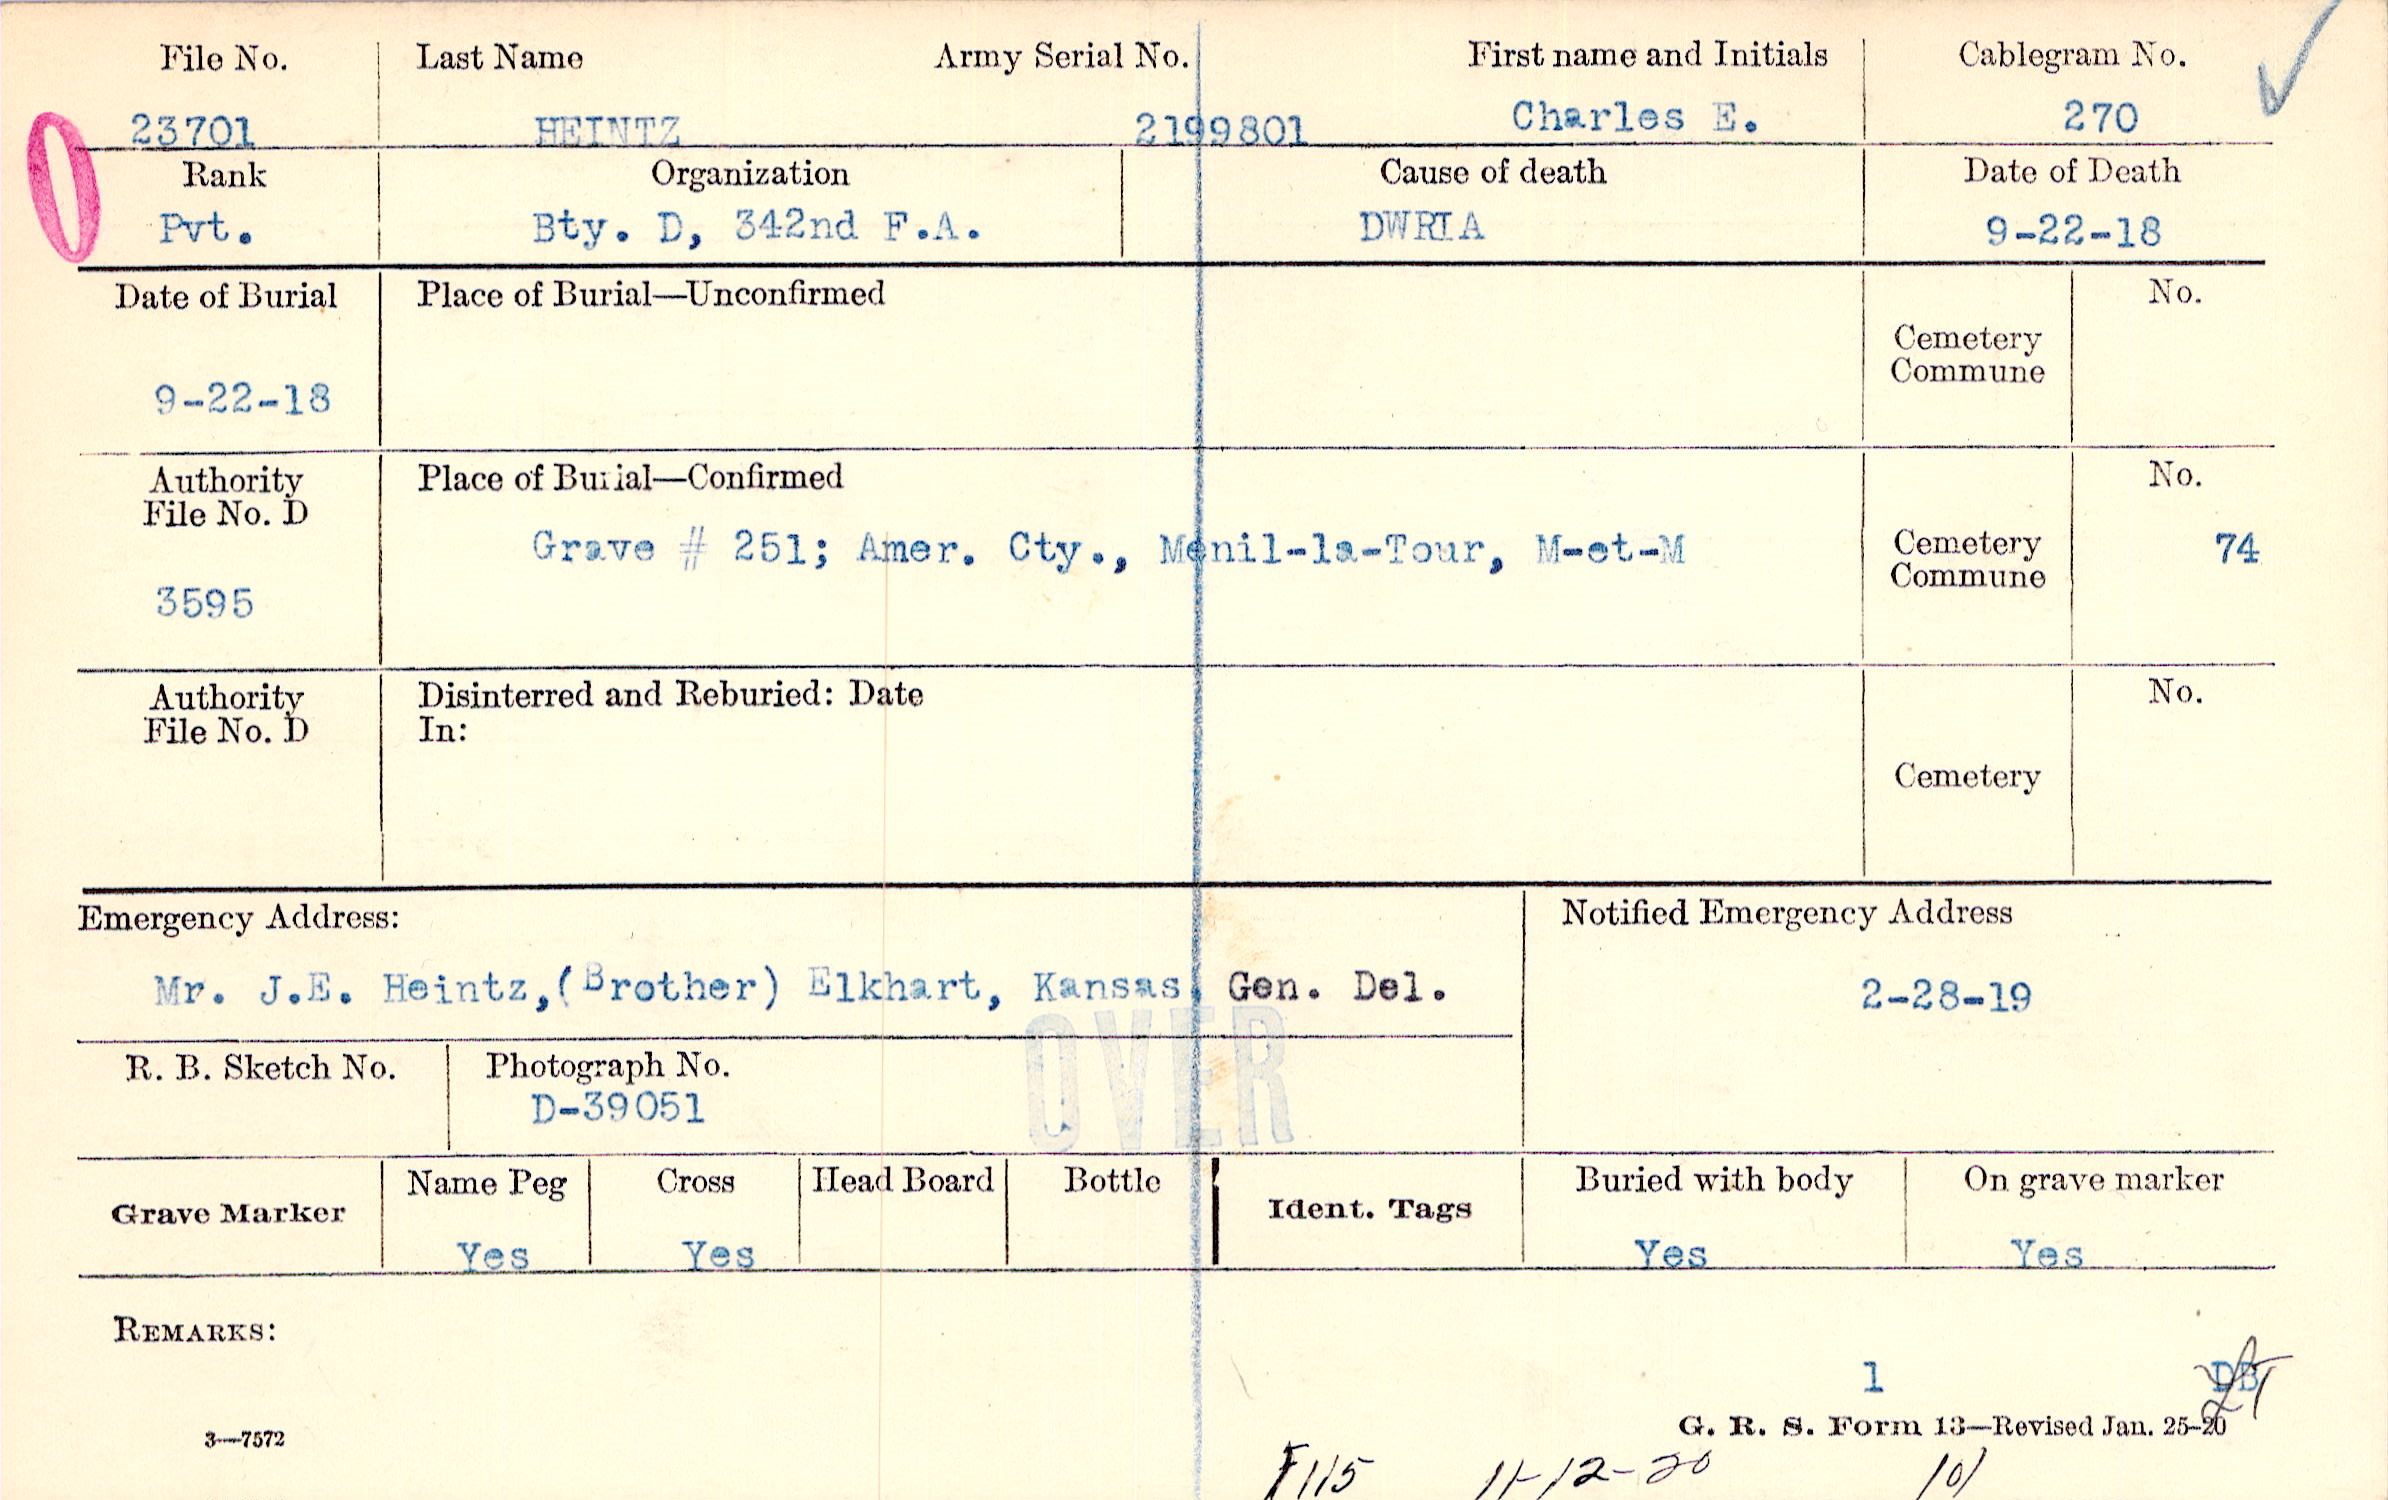 File No. Last Name Army Serial No. First name and Initials Cablegram No.
23701 HEINTZ 2199801 Charles E. 270
Rank Organization Cause of death Date of Death
Pvt. Bty. D, 342nd F.A. DWRIA 9-22-18
Date of Burial Place of Burial—Unconfirmed No.
Cemetery
Commune
9-22-18
Authority Place of Burial—Confirmed No.
File No. D
Grave # 251; Amer. Cty., Menil-la-Tour, M-et-M Cemetery 74
Commune
3595
Authority Disinterred and Reburied: Date No.
File No. D In:
Cemetery
Emergency Address: Notified Emergency Address
Mr. J.E. Heintz,(Brother) Elkhart, Kansas, Gen. Del. 2-28-19
OVER
R. B. Sketch No. Photograph No.
D-39051
Grave Marker Name Peg Cross Head Board Bottle Ident. Tags Buried with body On grave marker
Yes Yes Yes Yes
REMARKS:
1 DB
3—7572 G. R. S. Form 13—Revised Jan. 25-20
F115 11-12-20 101